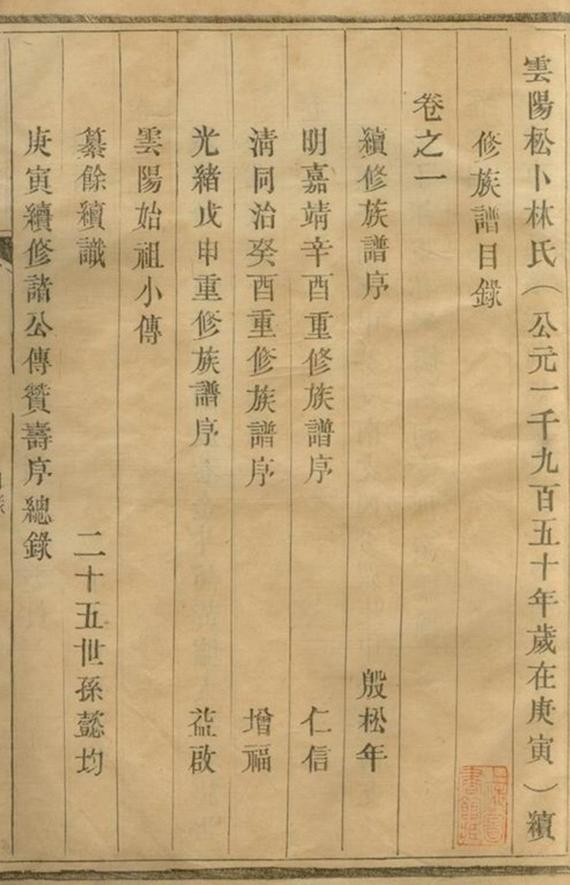 雲陽松卜林氏（公元一千九百五十年歲在庚寅）續
修族譜目錄
卷之一
續修族譜序 殷松年
明嘉靖辛酉重修族譜序 仁信
清同治癸酉重修族譜序 增福
光緒戊申重修族譜序 益啟
雲陽始祖小傳
纂餘續識 二十五世孫懿均
庚寅續修諸公傳贊壽序總錄